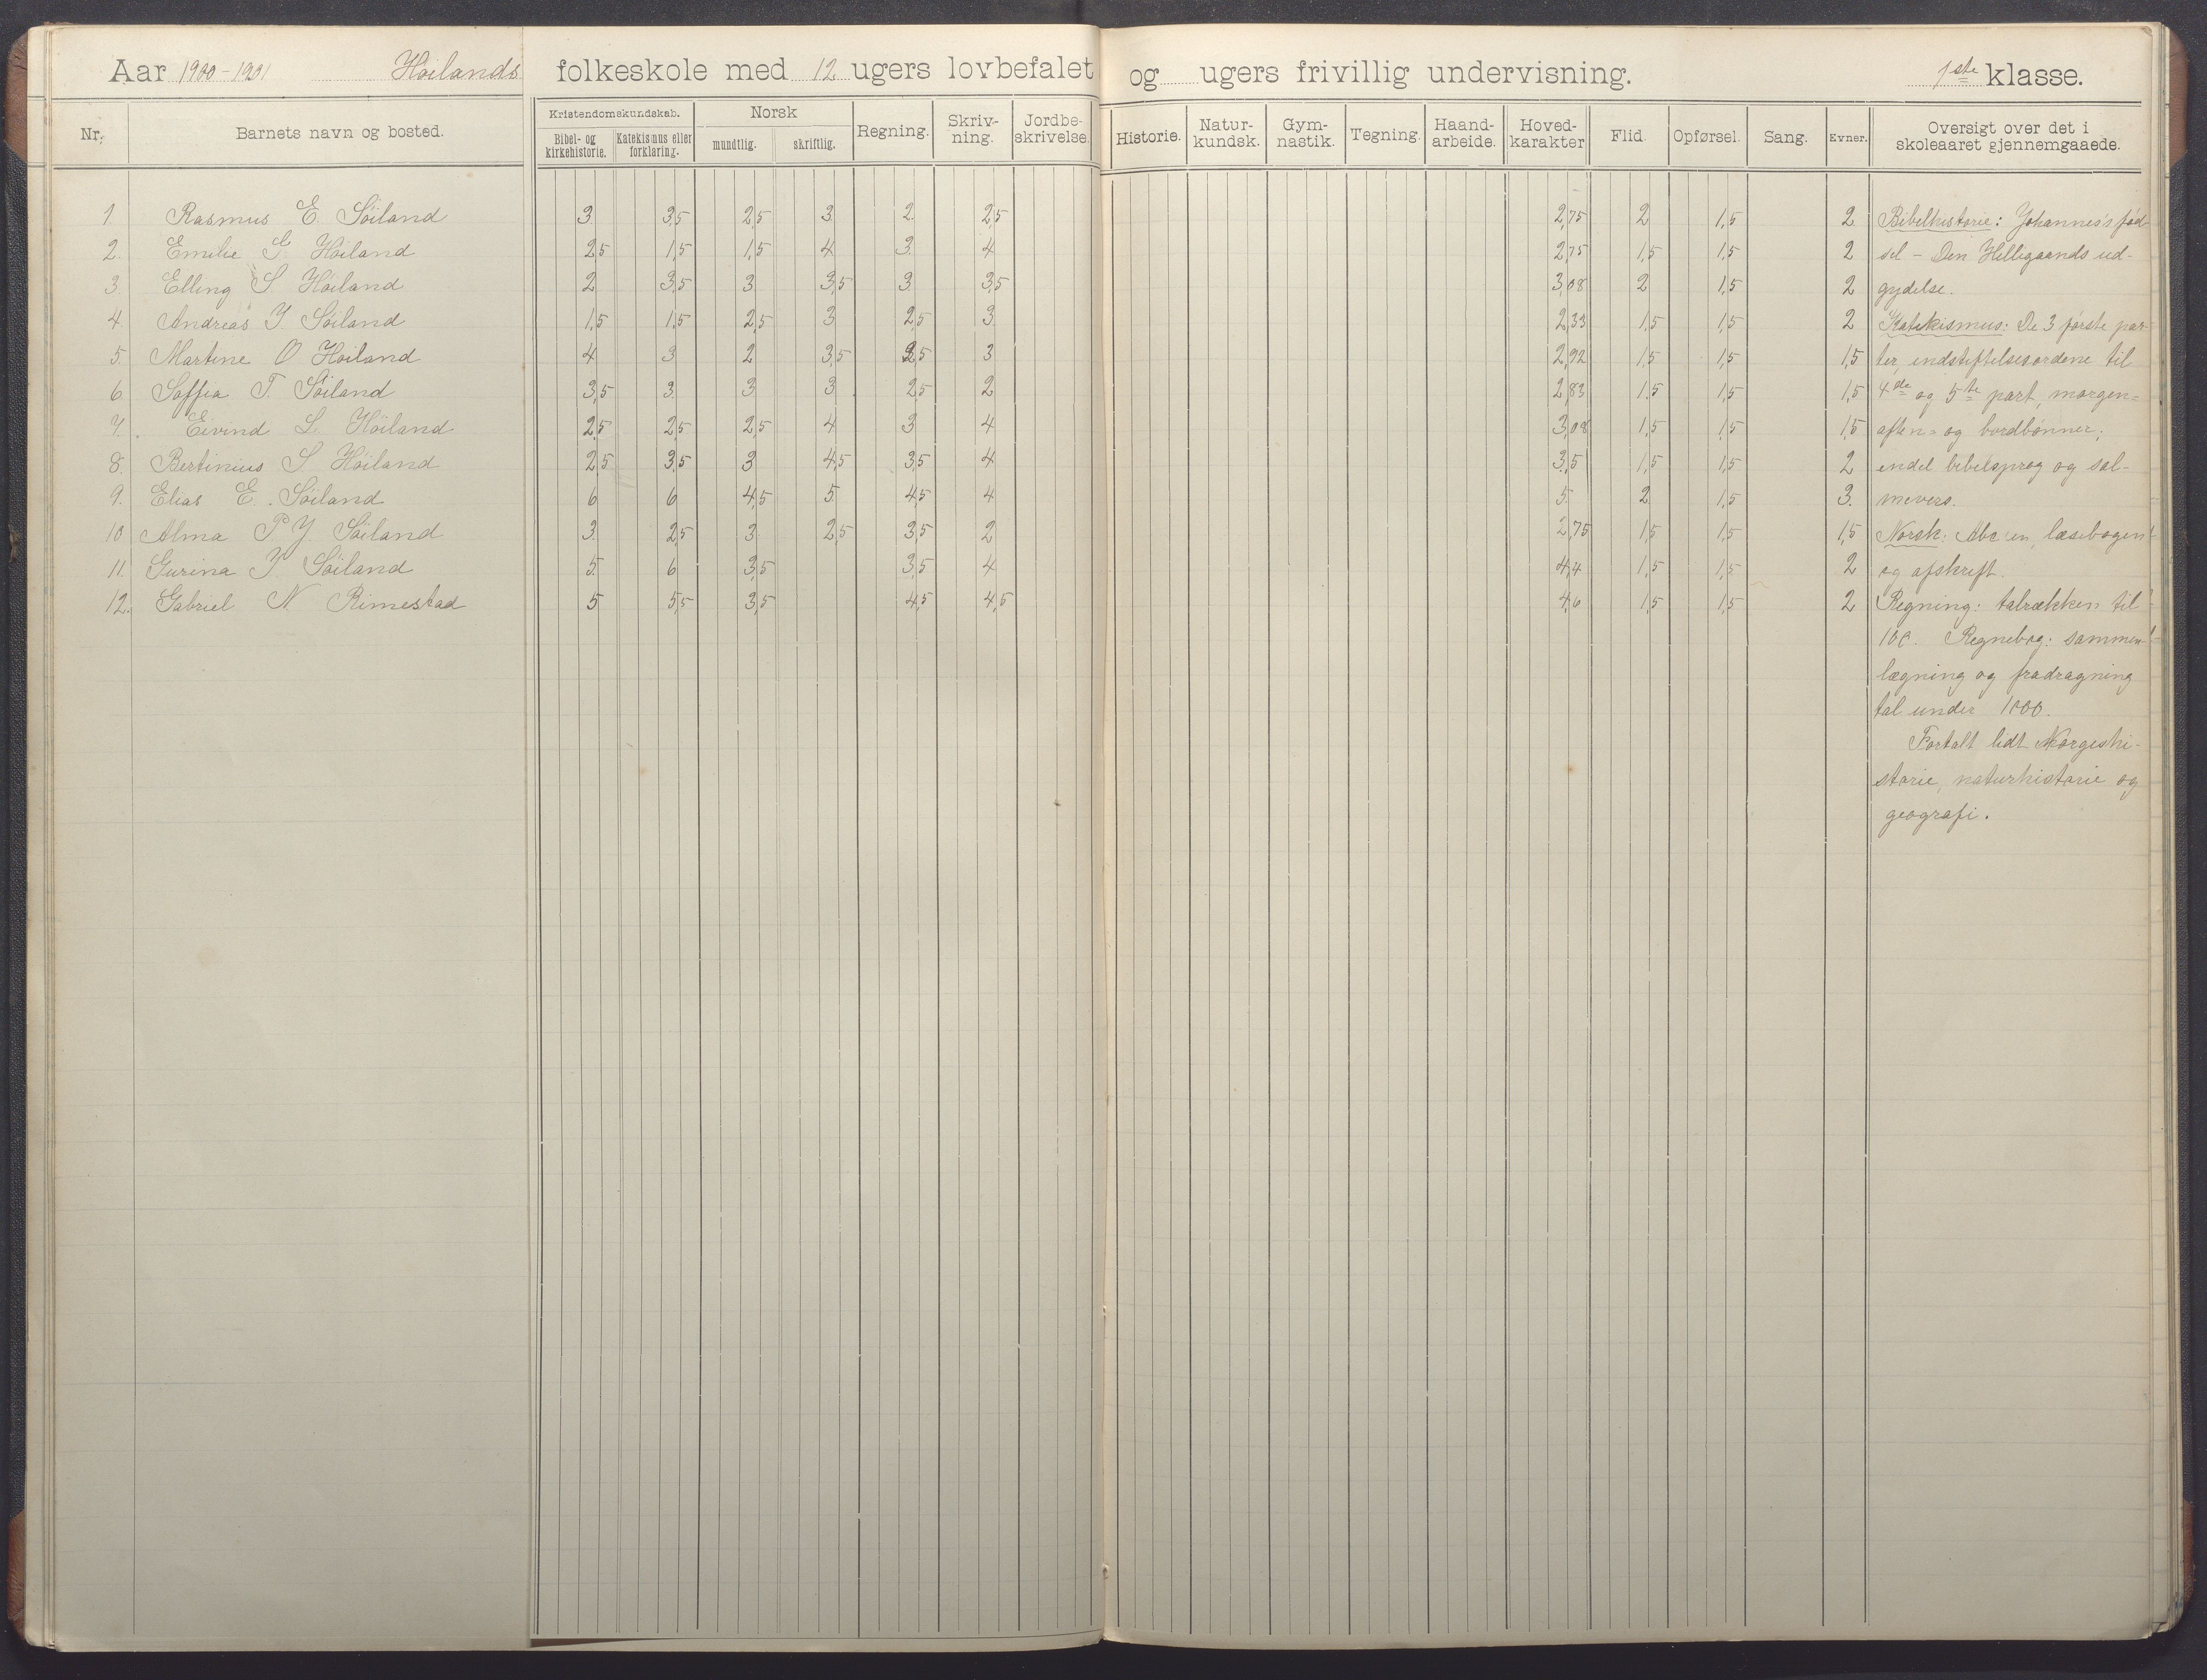 Aar 1900-1901 Høilands folkeskole med 12 ugers lovbefalet og ugers frivillig undervisning. 1ste klasse.
Nr. Barnets navn og bosted. Kristendomskundskab. Bibel- og kirkehistorie. Katekismus eller forklaring. Norsk mundtlig. skriftlig. Regning. Skriv-ning. Jordbe-skrivelse. Historie. Natur-kundsk. Gym-nastik. Tegning. Haand-arbeide. Hoved-karakter Flid. Opførsel. Sang. Evner. Oversigt over det i skoleaaret gjennemgaaede.
1. Rasmus E. Søiland 3 3,5 2,5 3 2 2,5 2,75 2 1,5 2 Bibelhistorie: Johannes's fød-
2. Emilie G. Høiland 2,5 1,5 1,5 4 3 4 2,75 1,5 1,5 2 sel - Den Helligaands ud-
3. Elling S. Høiland 2 3,5 3 3,5 3 3,5 3,08 2 1,5 2 gydelse.
4. Andreas J. Søiland 1,5 1,5 2,5 3 2,5 3 2,33 1,5 1,5 2 Katekismus: De 3 første par-
5. Martine O Høiland 4 3 2 3,5 3 2,92 1,5 1,5 1,5 ter, indstiftelsesordene til
6. Soffia T. Søiland 3,5 3 3 3 2,5 2 2,83 1,5 1,5 1,5 4de og 5te part, morgen-
7. Eivind L. Høiland 2,5 2,5 2,5 4 3 4 3,08 1,5 1,5 1,5 aften- og bordbønner;
8. Bertinius S Høiland 2,5 3,5 3 4,5 3,5 4 3,5 1,5 1,5 2 endel bibelsprog og sal-
9. Elias E. Søiland 6 6 4,5 5 4,5 4 5 2 1,5 3. mevers.
10 Alma P J. Søiland 3 2,5 3 2,5 3,5 2 2,75 1,5 1,5 1,5 Norsk: Abc'en, læsebogen
11. Gurina J. Søiland 5 6 3,5 3,5 4 4,4 1,5 1,5 2 og afskrift.
12. Gabriel N. Rimestad 5 5,5 3,5 4,5 4,5 4,6 1,5 1,5 2 Regning: talrækken til
100. Regnebog: sammen-
lægning og fradragning
tal under 1000.
Fortalt lidt Norgeshi-
storie, naturhistorie og
geografi.